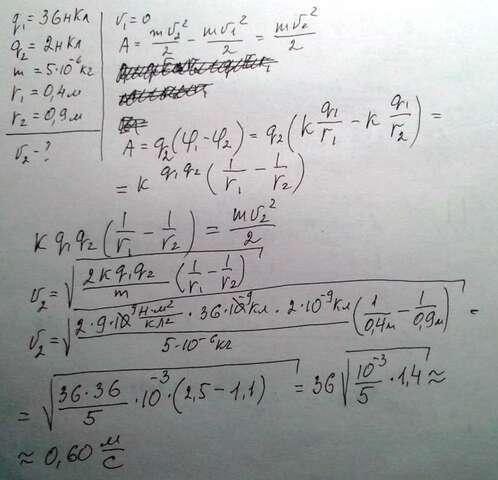 q₁ = 36нКл
q₂ = 2нКл
m = 5·10⁻⁶кг
r₁ = 0,4м
r₂ = 0,9м
v₂ - ?
v₁ = 0
A = mv₂²/2 - mv₁²/2 = mv₂²/2
A = q₂(φ₁-φ₂) = q₂(k q₁/r₁ - k q₁/r₂) =
= k q₁q₂ (1/r₁ - 1/r₂)
k q₁q₂ (1/r₁ - 1/r₂) = mv₂²/2
v₂ = √(2kq₁q₂/m (1/r₁ - 1/r₂))
v₂ = √(2·9·10⁹ Н·м²/Кл² · 36·10⁻⁹Кл · 2·10⁻⁹Кл / 5·10⁻⁶кг (1/0,4м - 1/0,9м)) =
= √(36·36/5 · 10⁻³ · (2,5-1,1)) = 36√(10⁻³/5 · 1,4) ≈
≈ 0,60 м/с